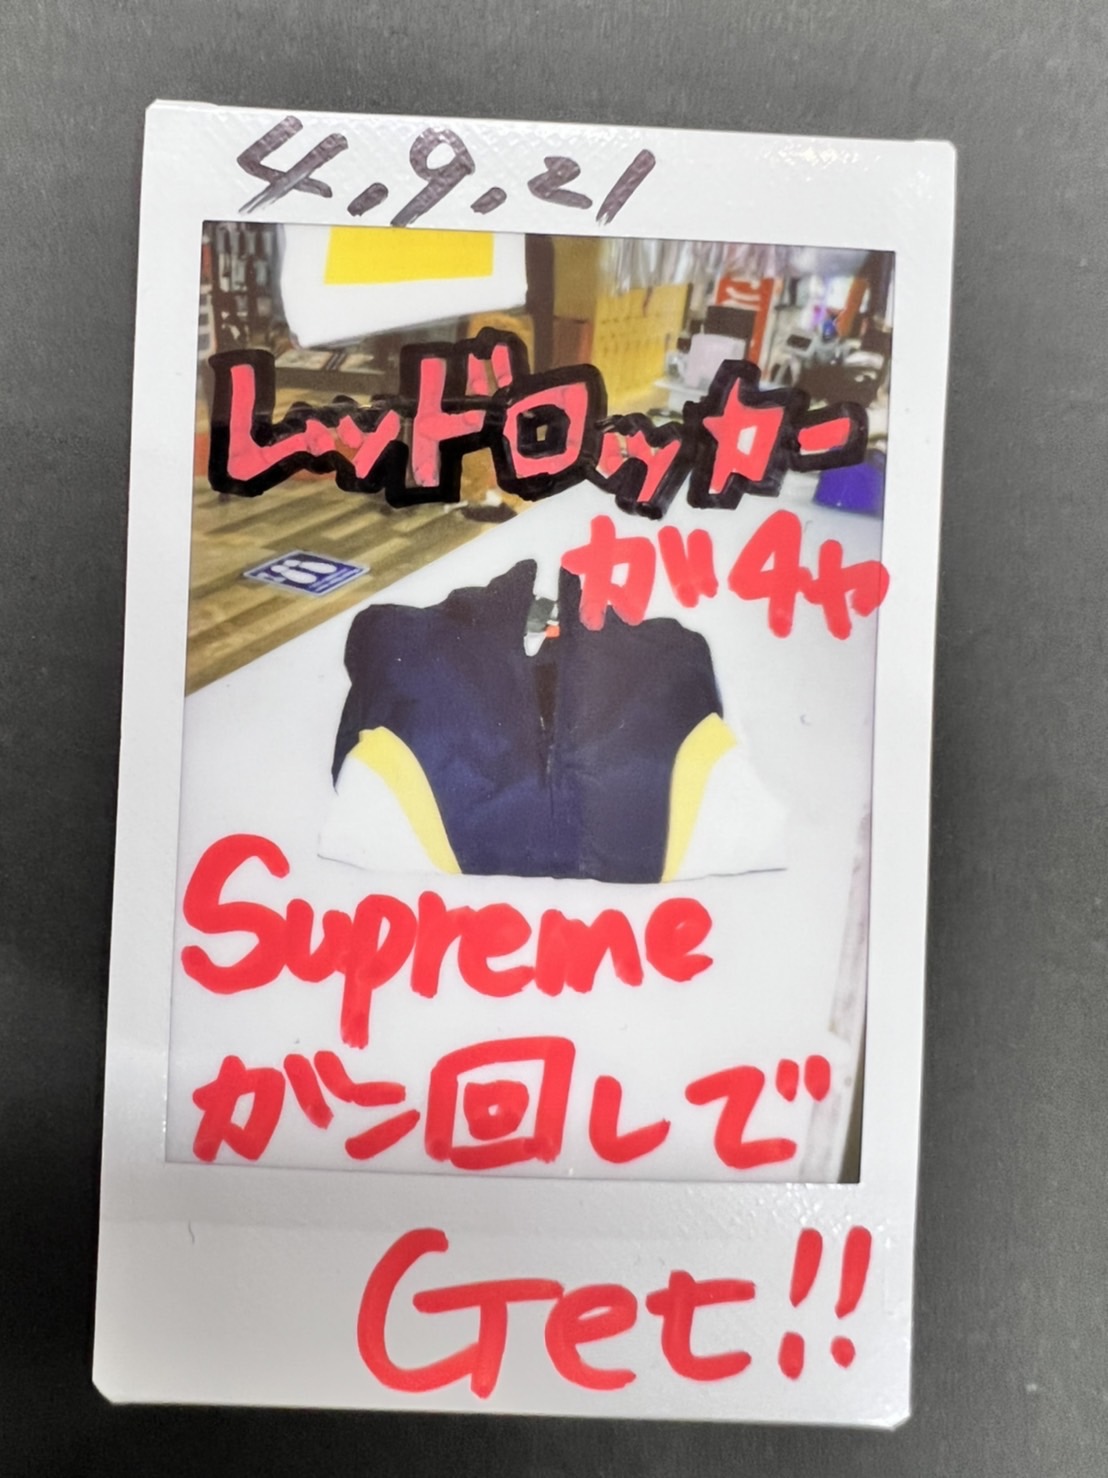 4.9.21
レッドロッカー
ガチャ
Supreme
ガン回しで
Get!!